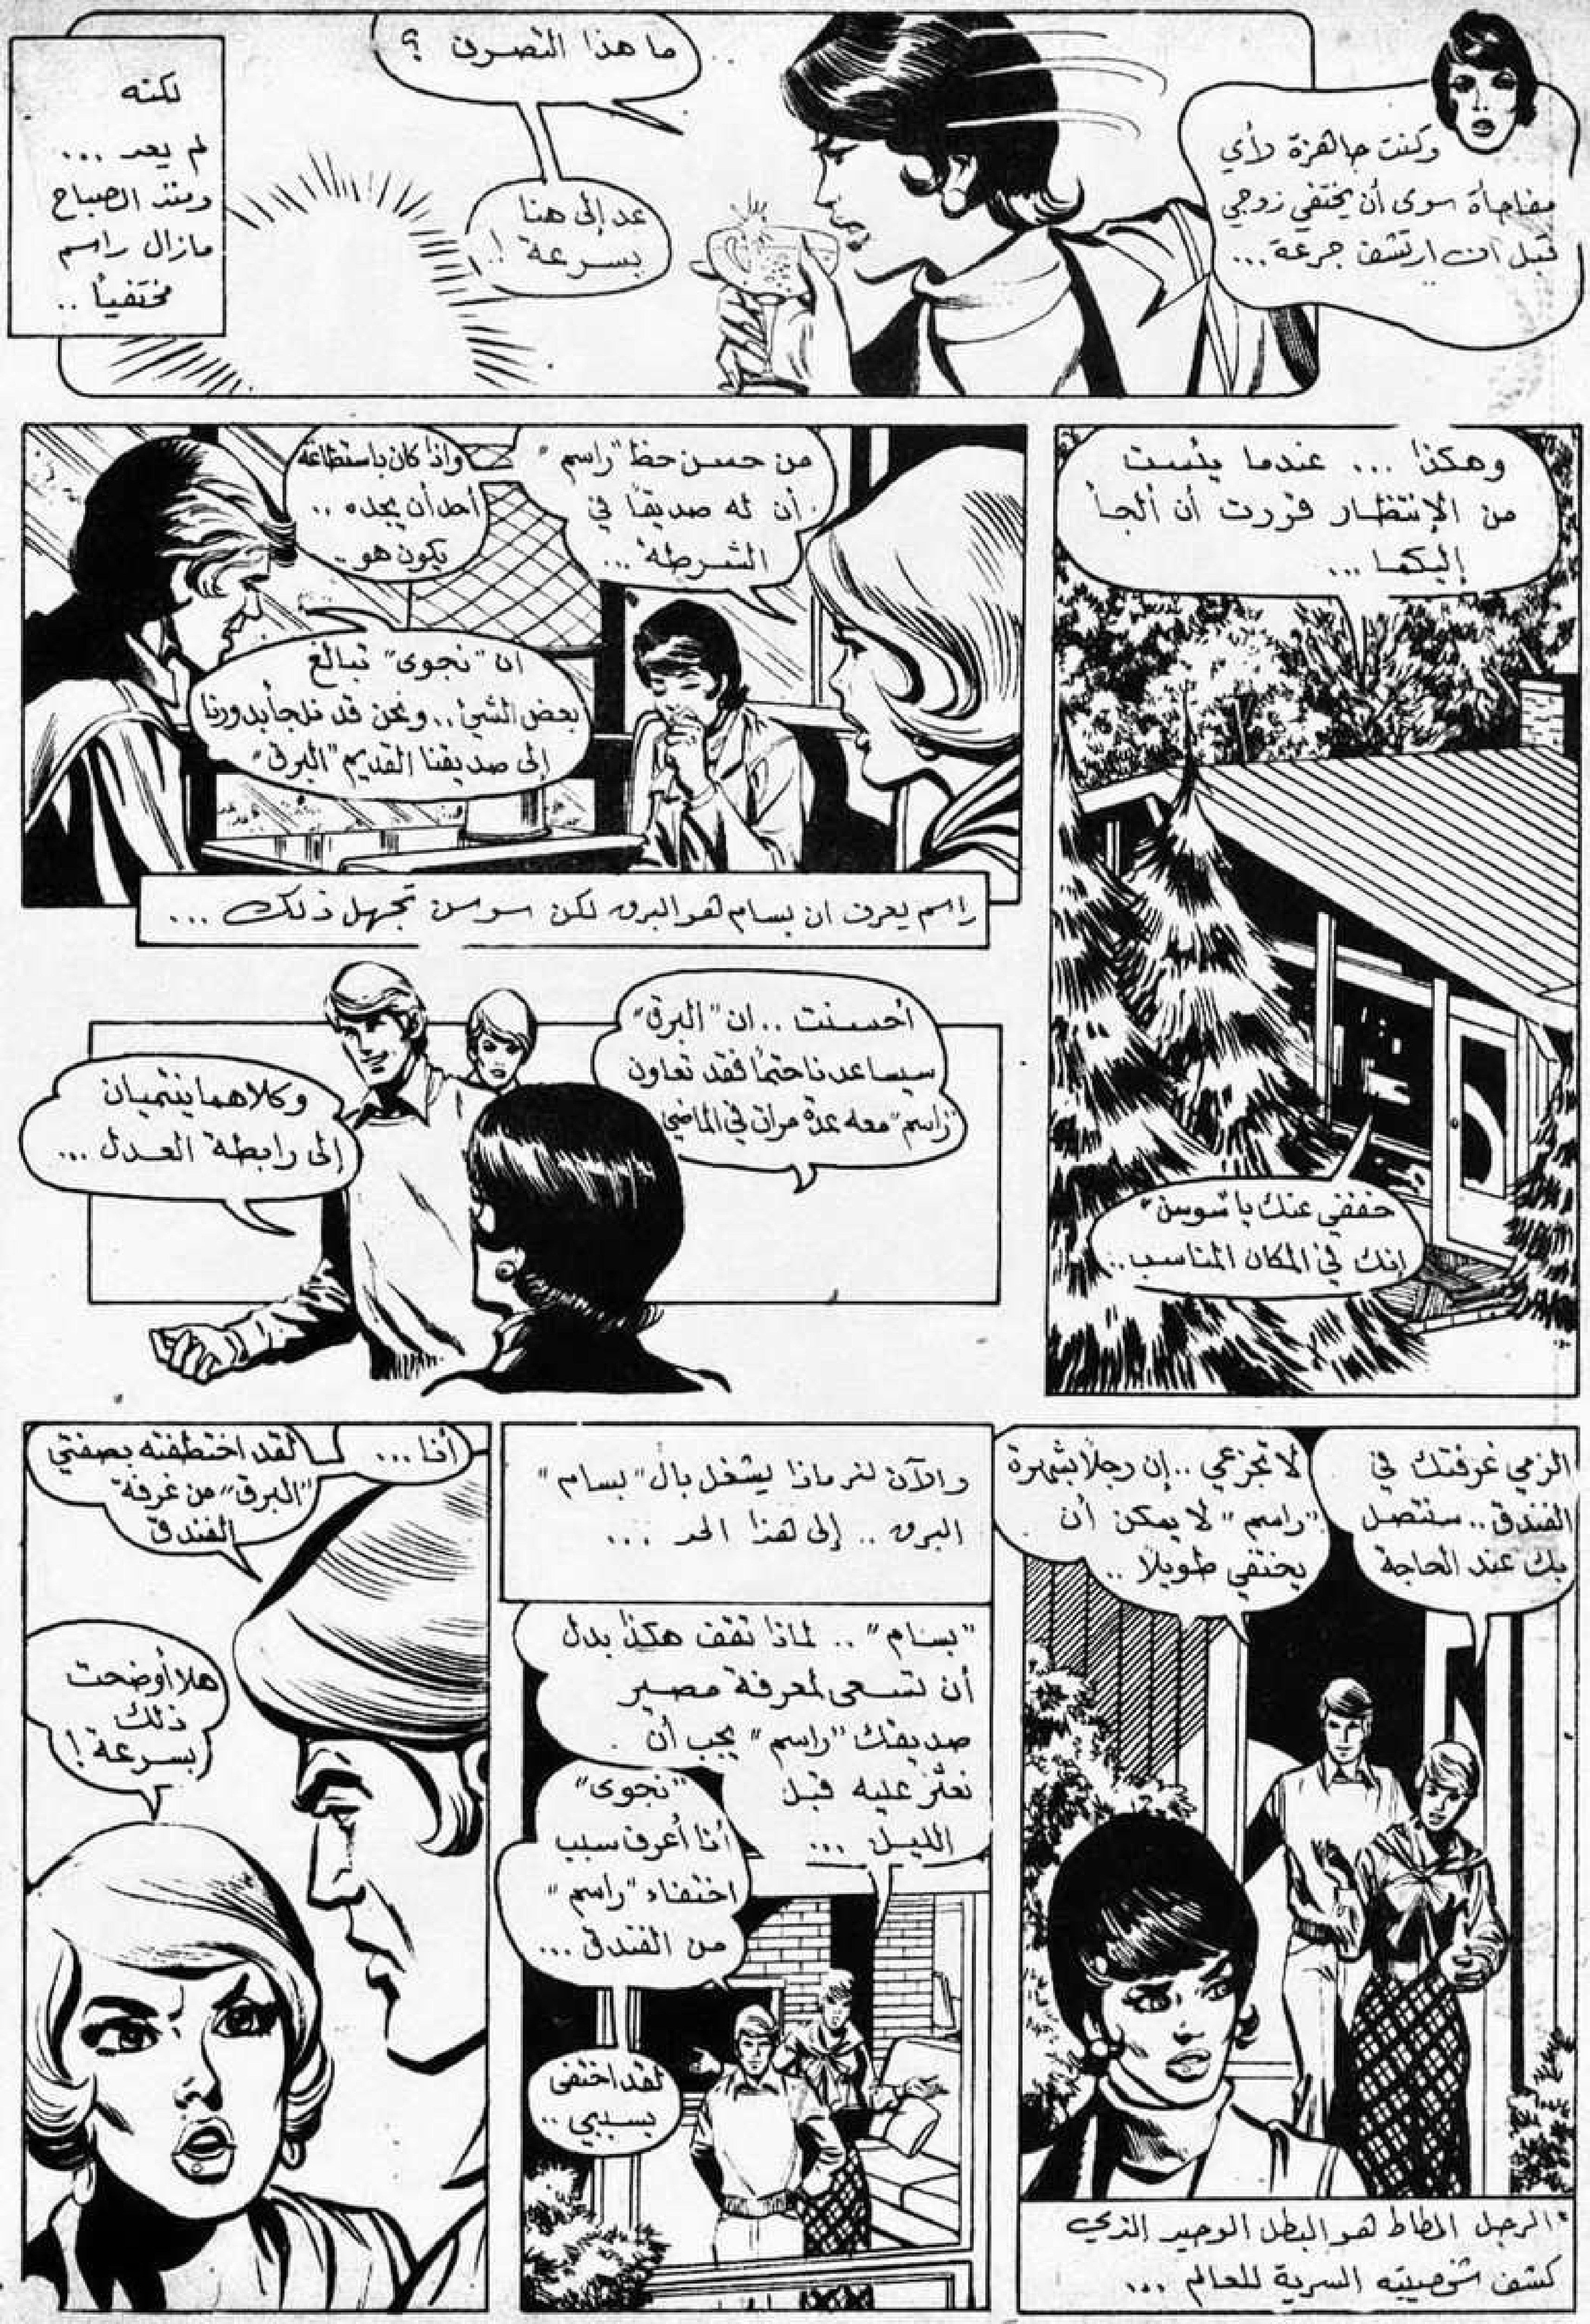 وكنت جاهزة لأي
مفاجأة سوى أن يختفي زوجي
قبل ان ارتشف جرعة...
ما هذا التصرف ؟
عد إلى هنا
بسرعة !
لكنه
لم يعد ...
ومنذ الصباح
مازال راسم
مختفياً ..
وهكذا ... عندما يئست
من الإنتظار قررت أن ألجأ
إليكما ...
خففي عنك يا "سوسن"
إنك في المكان المناسب ..
من حسن حظ "راسم"
أن له صديقاً في
الشرطة ...
واذا كان باستطاعة
أحد أن يجده ..
يكون هو ..
ان "نجوى" تبالغ
بعض الشيئ .. ونحن قد نلجأ بدورنا
إلى صديقنا القديم "البرق"
راسم يعرف ان بسام هو البرق لكن سوسن تجهل ذلك ...
أحسنت .. ان "البرق"
سيساعدنا حتماً فقد تعاون
"راسم" معه عدة مرات في الماضي
وكلاهما ينتميان
إلى رابطة العدل ...
الزمي غرفتك في
الفندق .. سنتصل
بك عند الحاجة
لا تجزعي .. إن رجلاً بشهرة
"راسم" لا يمكن أن
يختفي طويلاً ..
* الرجل المطاط هو البطل الوحيد الذي
كشف شخصيته السرية للعالم ...
والآن لنر ماذا يشغل بال "بسام"
البرق .. إلى هذا الحد ...
"بسام" .. لماذا تقف هكذا بدل
أن تسعى لمعرفة مصير
صديقك "راسم" يجب أن
نعثر عليه قبل
الليل ...
"نجوى"
أنا أعرف سبب
اختفاء "راسم"
من الفندق ...
لقد اختفى
بسببي ..
أنا ...
لقد اختطفته بصفتي
"البرق" من غرفة
الفندق
هلا أوضحت
ذلك
بسرعة !